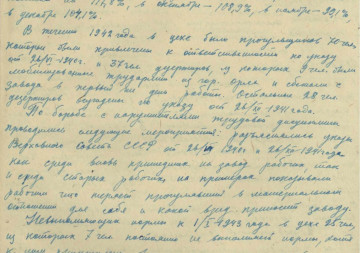 на 111,8%, в октябре - 109,3%, в ноябре - 99,1%
в декабре 109,1%.
В течении 1942 года в цехе было прогульщиков 70 чел.
которые были привлечены к ответственности по указу
от 26/VI 1940 г. и 37 чел дезертиров, из которых 9 чел. были
мобилизованные трудармии из гор. Орска и бежали с
завода в первые же дни работы. Остальные 28 чел.
дезертиров осуждены по указу от 26/XII 1941 года.
По борьбе с нарушителями трудовой дисциплины
проводились следующие мероприятия: разъяснялись указы
Верховного Совета СССР от 26/VI 1940 г. и 26/XII 1941 года
как среди вновь пришедших на завод рабочих так
и среди старых рабочих на примерах показывали
рабочим что теряет прогулявший в материальном
отношении для себя и какой вред приносит заводу.
Невыполняющих нормы к 1/I-1943 года в цехе 25 чел,
из которых 7 чел постоянно не выполняет нормы